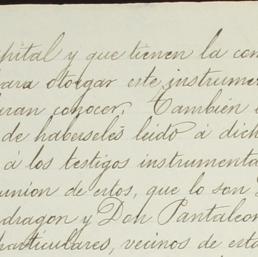 pital y que tienen la con
para otorgar este instrume
uran conocer. También
de haberseles leido á dich
á los testigos instrumenta
unión de ellos, que lo son
dragon y Don Pantaleon
particulares, vecinos de esta